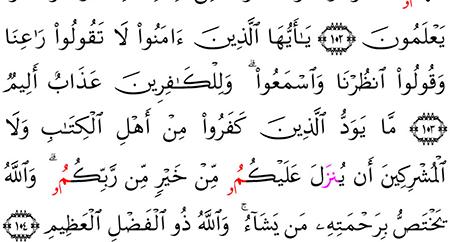 يَعْلَمُونَ ١٠٢ يَـٰٓأَيُّهَا ٱلَّذِينَ ءَامَنُوا۟ لَا تَقُولُوا۟ رَٰعِنَا
وَقُولُوا۟ ٱنظُرْنَا وَٱسْمَعُوا۟ ۗ وَلِلْكَـٰفِرِينَ عَذَابٌ أَلِيمٌ
١٠٣ مَّا يَوَدُّ ٱلَّذِينَ كَفَرُوا۟ مِنْ أَهْلِ ٱلْكِتَـٰبِ وَلَا
ٱلْمُشْرِكِينَ أَن يُنزَلَ عَلَيْكُمُۥ مِّنْ خَيْرٍ مِّن رَّبِّكُمُۥ ۗ وَٱللَّهُ
يَخْتَصُّ بِرَحْمَتِهِۦ مَن يَشَآءُ ۚ وَٱللَّهُ ذُو ٱلْفَضْلِ ٱلْعَظِيمِ ١٠٤